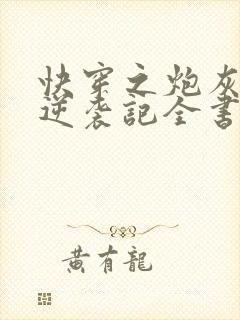 快穿之炮灰
逆袭記全書
黄有龍